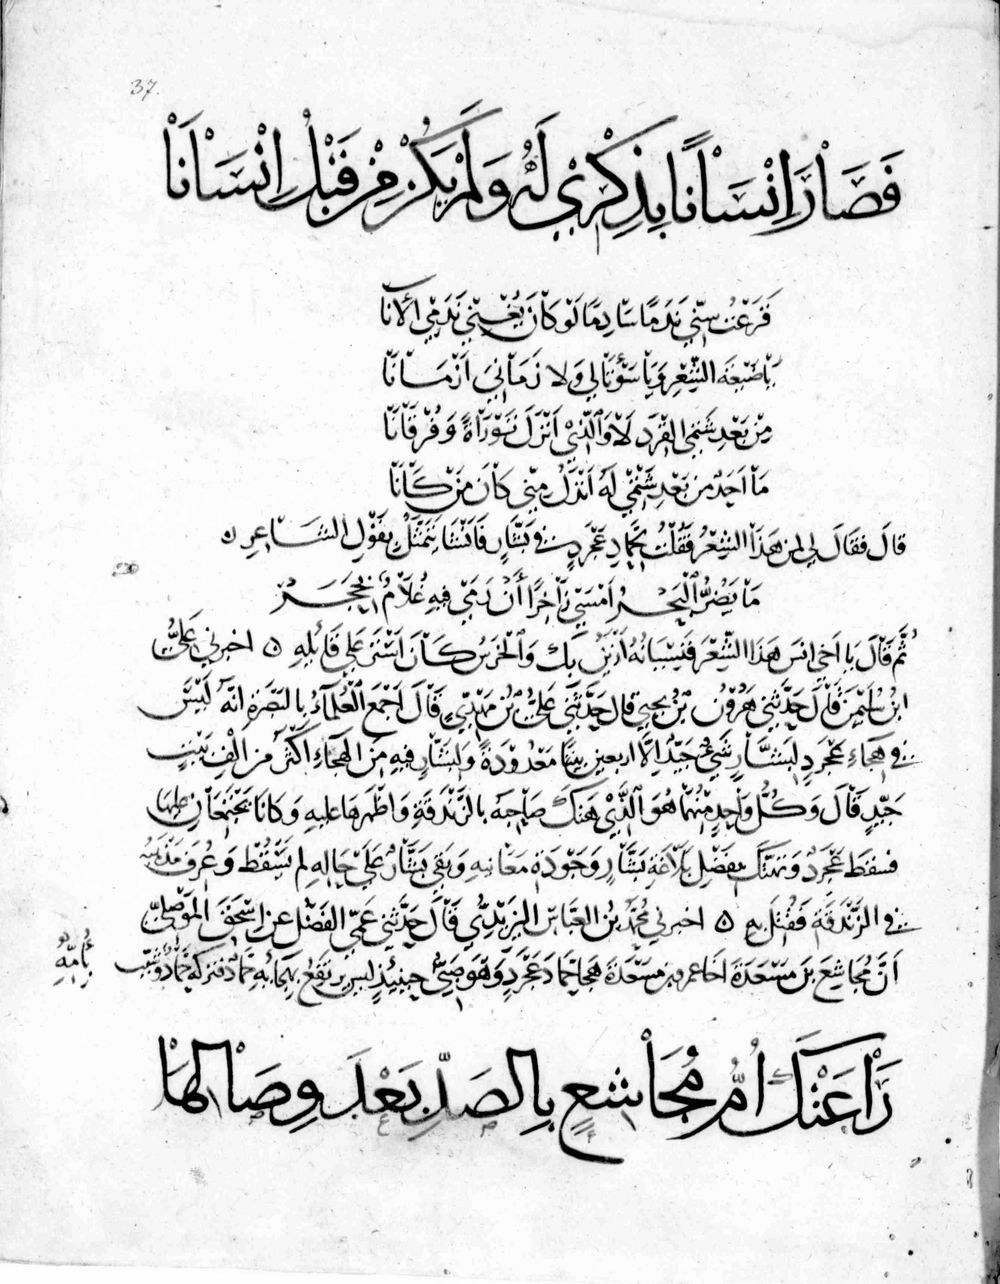 37
فَصَارَ اِنْسَانًا بِذِكْرِي لَهُ وَلَمْ يَكُنْ مِنْ قَبْلُ اِنْسَانَا
قَرَعْتُ سِنِّي نَدَمًا سَادِمًا لَوْ كَانَ يُغْنِي نَدَمِي الْآنَا
يَا ضَيْعَةَ الشِّعْرِ وَيَا سَوْءَتَا لِي وَلَا زَمَانِيَ اَزْمَانَا
مِنْ بَعْدِ شَتْمِي القِرْدَ لَا وَالَّذِي اَنْزَلَ تَوْرَاةً وَفُرْقَانَا
مَا اَحَدٌ مِنْ بَعْدِ شَتْمِي لَهُ اَنْذَلُ مِنِّي كَانَ مَنْ كَانَا
قالَ فقَالَ لِي لمن هَذَا الشِّعْرُ فَقُلْتُ لحَمَّادِ عَجْرَدٍ في بَشَّارٍ فَانْشَا يَتَمَثَّلُ بِقَوْلِ الشَّاعِرِ ٥
مَا يَضُرُّ الْبَحْرَ اَمْسَى زَاخِرًا أَنْ رَمَى فِيهِ غُلَامٌ بِحَجَرْ
ثُمَّ قَالَ يا اَخِي انسَ هَذَا الشِّعْرَ فَنِسْيَانُهُ اَزْيَنُ بِكَ وَالْخَرَسُ كَانَ اَسْتَرَ عَلَى قَائِلِهِ ٥ اخبرني عَلِيُّ
ابنُ سُلَيْمٰنَ قَالَ حَدَّثَنِي هٰرُوْنُ بْنُ يحيى قال حَدَّثَنِي عَلِيُّ بْنُ مَهْدِيٍّ قَالَ اَجْمَعَ الْعُلَمَاءُ بِالبَصْرَةِ انّهُ لَيْسَ
في هِجَاءِ عَجْرَدٍ لِبَشَّارٍ شَيْءٌ جَيِّدٌ اِلَّا اربعين بيتًا مَعْدُودَةً وَلِبَشَّارٍ فِيهِ مِنَ الْهِجَاءِ اَكْثَرُ مِنْ اَلْفِ بَيْتٍ
جَيِّدٍ قَالَ وَكُلُّ وَاحِدٍ مِنْهُمَا هُوَ الَّذِي هَتَكَ صَاحِبَهُ بالزَّنْدَقَةِ وَاظْهَرَهَا عليهِ وَكانَا يَجْتَمِعَانِ عليها
فسقَطَ عَجْرَدٌ وَتَهَتَّكَ بفَضْلِ بَلَاغَةِ بَشَّارٍ وَجَوْدَةِ مَعَانِيهِ وَبَقِيَ بَشَّارٌ عَلَى حَالِهِ لم يَسْقُطْ وَعُرِفَ مَذْهَبُهُ
في الزَّنْدَقَةِ فَقُتِلَ بِهِ ٥ اخبرني مُحَمَّدُ بنُ العَبَّاسِ اليَزِيْدِيّ قَالَ حَدَّثَنِي عَمِّي الفَضْلُ عن اِسْحٰقَ المَوْصِلِيّ
اَنَّ مُجَاشِعَ بنَ مَسْعَدَةَ اخَا عمرو بن مَسْعَدَةَ هَجَا حَمَّادَ عَجْرَدٍ وَهْوَ صَبِيٌّ حِيْنَئِذٍ ليَرْتَفِعَ بِهِجَائِهِ حَمَّادًا فتركَهُ حَمَّادٌ وَشَبَّبَ
بِأُمِّهِ
رَاعَتْكَ اُمُّ مُجَاشِعٍ بِالصَدِّ بَعْدَ وِصَالِهَا